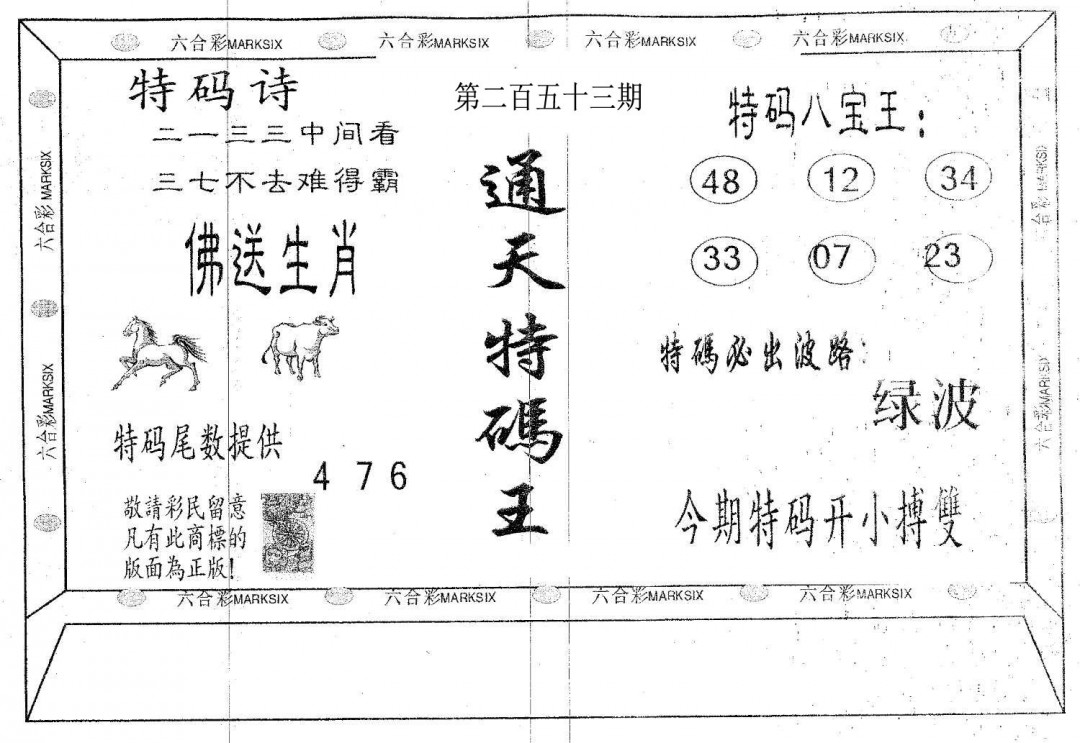 六合彩MARKSIX 六合彩MARKSIX 六合彩MARKSIX 六合彩MARKSIX
特码诗
二一三三中间看
三七不去难得霸
佛送生肖
特码尾数提供
4 7 6
敬請彩民留意
凡有此商標的
版面為正版!
第二百五十三期
通天特碼王
特码八宝王:
48 12 34
33 07 23
特碼必出波路:
绿波
今期特码开小搏雙
六合彩 MARKSIX
六合彩MARKSIX
六合彩 MARKSIX
六合彩MARKSIX
六合彩MARKSIX 六合彩MARKSIX 六合彩MARKSIX 六合彩MARKSIX